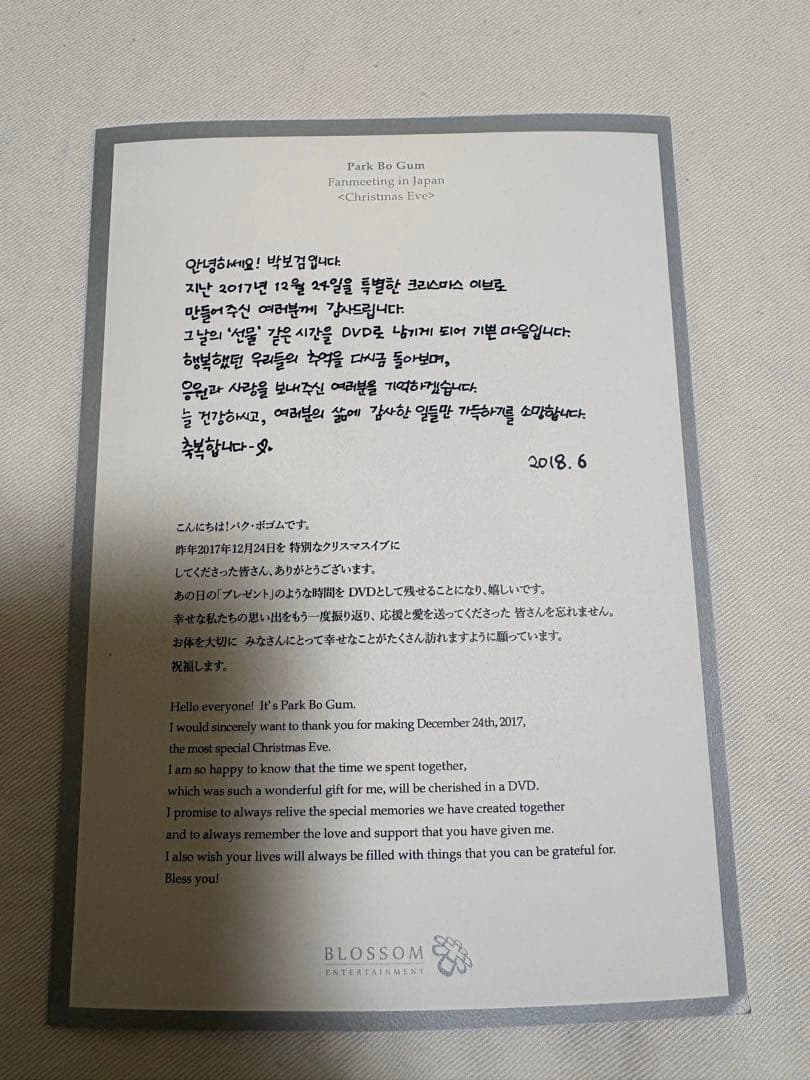 Park Bo Gum
Fanmeeting in Japan
<Christmas Eve>
안녕하세요! 박보검입니다.
지난 2017년 12월 24일을 특별한 크리스마스 이브로
만들어주신 여러분께 감사드립니다.
그날의 '선물' 같은 시간을 DVD로 남기게 되어 기쁜 마음입니다.
행복했던 우리들의 추억을 다시금 돌아보며,
응원과 사랑을 보내주신 여러분을 기억하겠습니다.
늘 건강하시고, 여러분의 삶에 감사한 일들만 가득하기를 소망합니다.
축복합니다-♡.
2018.6
こんにちは!パク・ボゴムです。
昨年2017年12月24日を 特別なクリスマスイブに
してくださった皆さん、ありがとうございます。
あの日の「プレゼント」のような時間を DVDとして残せることになり、嬉しいです。
幸せな私たちの思い出をもう一度振り返り、応援と愛を送ってくださった 皆さんを忘れません。
お体を大切に みなさんにとって幸せなことがたくさん訪れますように願っています。
祝福します。
Hello everyone! It's Park Bo Gum.
I would sincerely want to thank you for making December 24th, 2017,
the most special Christmas Eve.
I am so happy to know that the time we spent together,
which was such a wonderful gift for me, will be cherished in a DVD.
I promise to always relive the special memories we have created together
and to always remember the love and support that you have given me.
I also wish your lives will always be filled with things that you can be grateful for.
Bless you!
BLOSSOM
ENTERTAINMENT